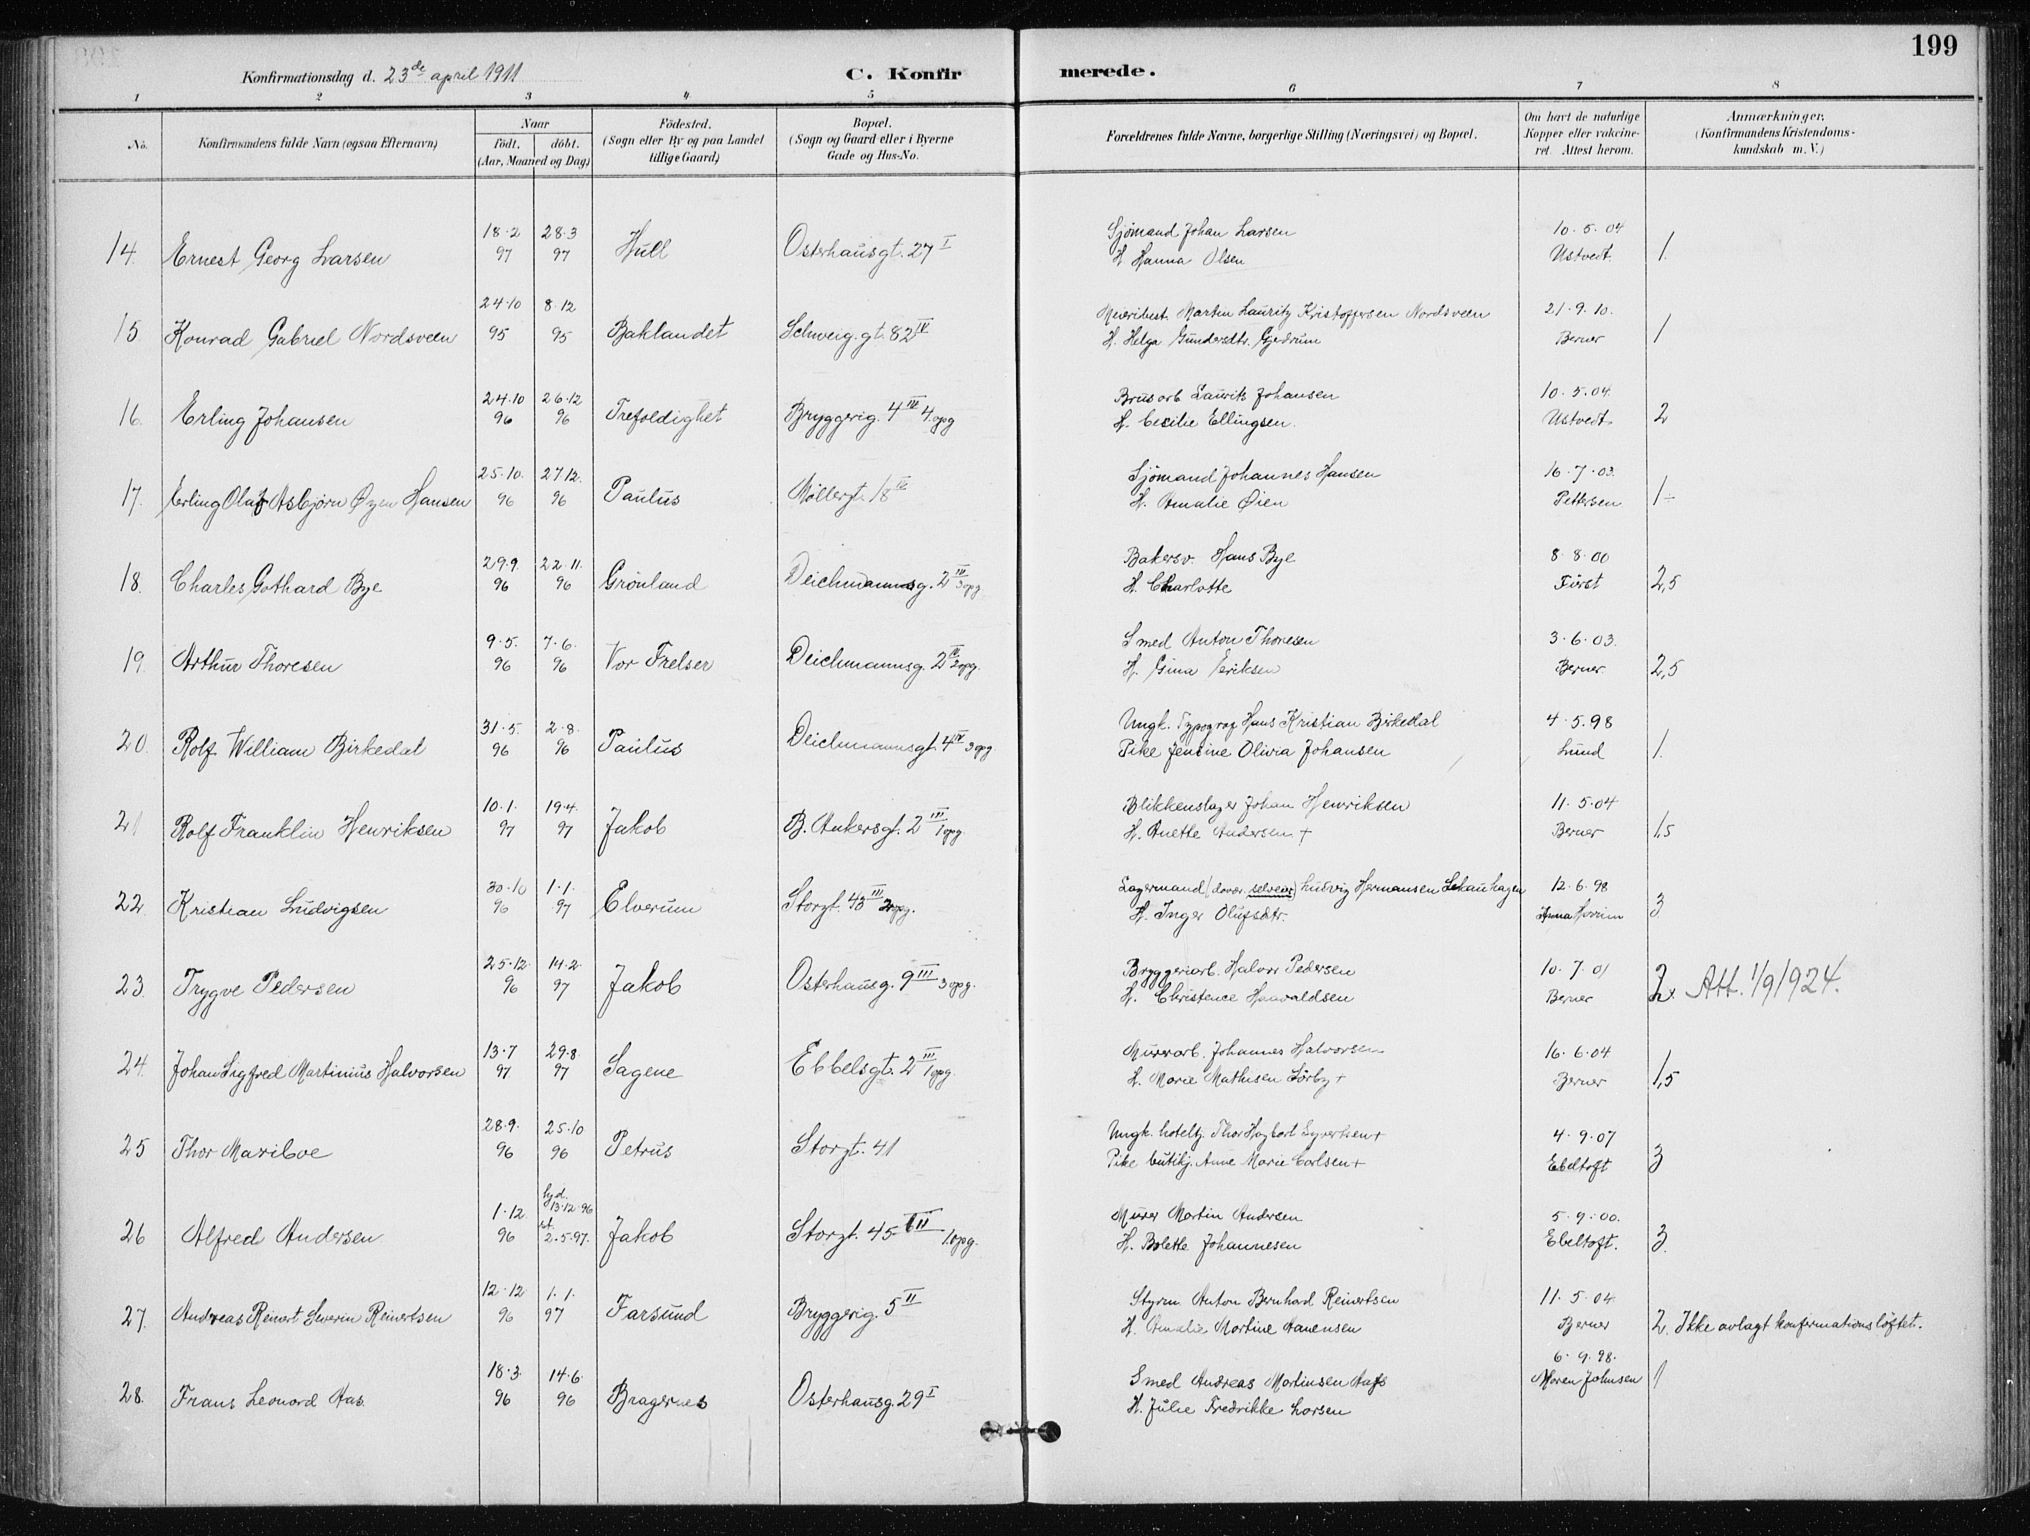 199
Konfirmationsdag d. 23de april 1911
C. Konfirmerede.
1 2 3 4 5 6 7 8
No.
Konfirmandens fulde Navn (ogsaa Efternavn)
Naar
födt. döbt.
(Aar, Maaned og Dag)
Födested.
(Sogn eller By og paa Landet
tillige Gaard)
Bopæl.
(Sogn og Gaard eller i Byerne
Gade og Hus-No.
Forældrenes fulde Navne, borgerlige Stilling (Næringsvei) og Bopæl.
Om havt de naturlige
Kopper eller vakcine-
ret. Attest herom.
Anmærkninger.
(Konfirmandens Kristendoms-
kundskab m. V.)
14. Ernest Georg Larsen 18·2 97 28·3 97 Hull Osterhausgt. 27 I
Sjömand Johan Larsen
H. Hanna Olsen
10·5·04 Ustvedt. 1.
15 Konrad Gabriel Nordsveen 24·10 95 8·12 95 Baklandet Schweig.gt. 82 IV
Meieribest. Martin Lauritz Kristoffersen Nordsveen
H. Helga Gundersdtr. Gjedrum
21·9·10. Berner 1
16. Erling Johansen 24·10 96 26·12 96 Trefoldighet Bryggerig. 4 III 4 opg
Brusarb Laurits Johansen
H. Cecilie Ellingsen.
10·5·04. Ustvedt. 2
17. Erling Olaf Asbjørn Øyen Hansen 25·10. 96 27·12. 96 Paulus Møllergt. 18 IV
Sjömand Johannes Hansen
H. Amalie Øien
16·7·03. Pettersen 1-
18. Charles Gothard Bye 29·9. 96 22·11. 96 Grönland Deichmannsg. 2 III 3 opg
Bakersv. Hans Bye
H. Charlotte
8·8·00 Fürst 2,5
19. Arthur Thoresen 9·5. 96 7·6. 96 Vor Frelser Deichmannsg. 2 IV 2 opg.
Smed Anton Thoresen
H. Gina Eriksen
3·6·03. Berner. 2,5
20. Rolf William Birkedal 31·5. 96 2·8. 96 Paulus Deichmannsgt. 4 IV 3 opg
Ungk. Typograf Hans Kristian Birkedal
Pike Jensine Olivia Johansen
4·5·98 Lund 1.
21 Rolf Franklin Henriksen 10·1. 97 19·4. 97 Jakob B. Ankersgt. 2 III 1 opg.
Blikkenslager Johan Henriksen
H. Anette Andersen +
11·5·04 Berner 1,5
22. Kristian Ludvigsen 30·10 96 1·1. 97 Elverum Storgt. 43 III 2 opg.
Lagermand Ludvig Hermansen
H. Inger Olufsdtr.
12·6·98 Anna 3
23. Trygve Pedersen 25·12. 96 14·2. 97 Jakob Osterhausg. 9 III 3 opg.
Bryggeriarb. Halvor Pedersen
H. Christence Haavaldsen
10·7·01 Berner 2. Att. 1/9 1924.
24. Johan Sigfred Martinius Halvorsen 13·7 97 29·8. 97 Sagene Ebbelsgt. 2 III 1 opg.
Murerarb. Johannes Halvorsen
H. Marie Mathisen Sörby +
16·6·04 Berner 1,5
25 Thor Mariboe 28·9. 96 25·10 96 Petrus Storgt. 41
Ungk. hoteltj. Thor Hagbart Syvertsen +
Pike butikj. Anne Marie Carlsen +
4·9·07 Ebeltoft 3
26 Alfred Andersen 1·12. 96 hjd. 13·12·96 st. 2·5·97. Jakob Storgt. 45 III 1 opg.
Murer Martin Andersen
H. Bolette Johannesen
5·9·00. Ebeltoft. 3.
27. Andreas Reinert Severin Reinertsen 12·12 96 1·1. 97 Farsund Bryggerig. 5 II
Styrm Anton Bernhard Reinertsen
H. Amalie Martine Aanensen
11·5·04 Berner 2. Ikke avlagt konfirmationsløftet.
28. Frans Leonard Aas. 18·3. 96 14·6. 96 Bragernes Osterhausg. 29 I
Smed Andreas Martinsen Aas
H. Julie Fredrikke Larsen
6·9·98. Maren Johnsen 1